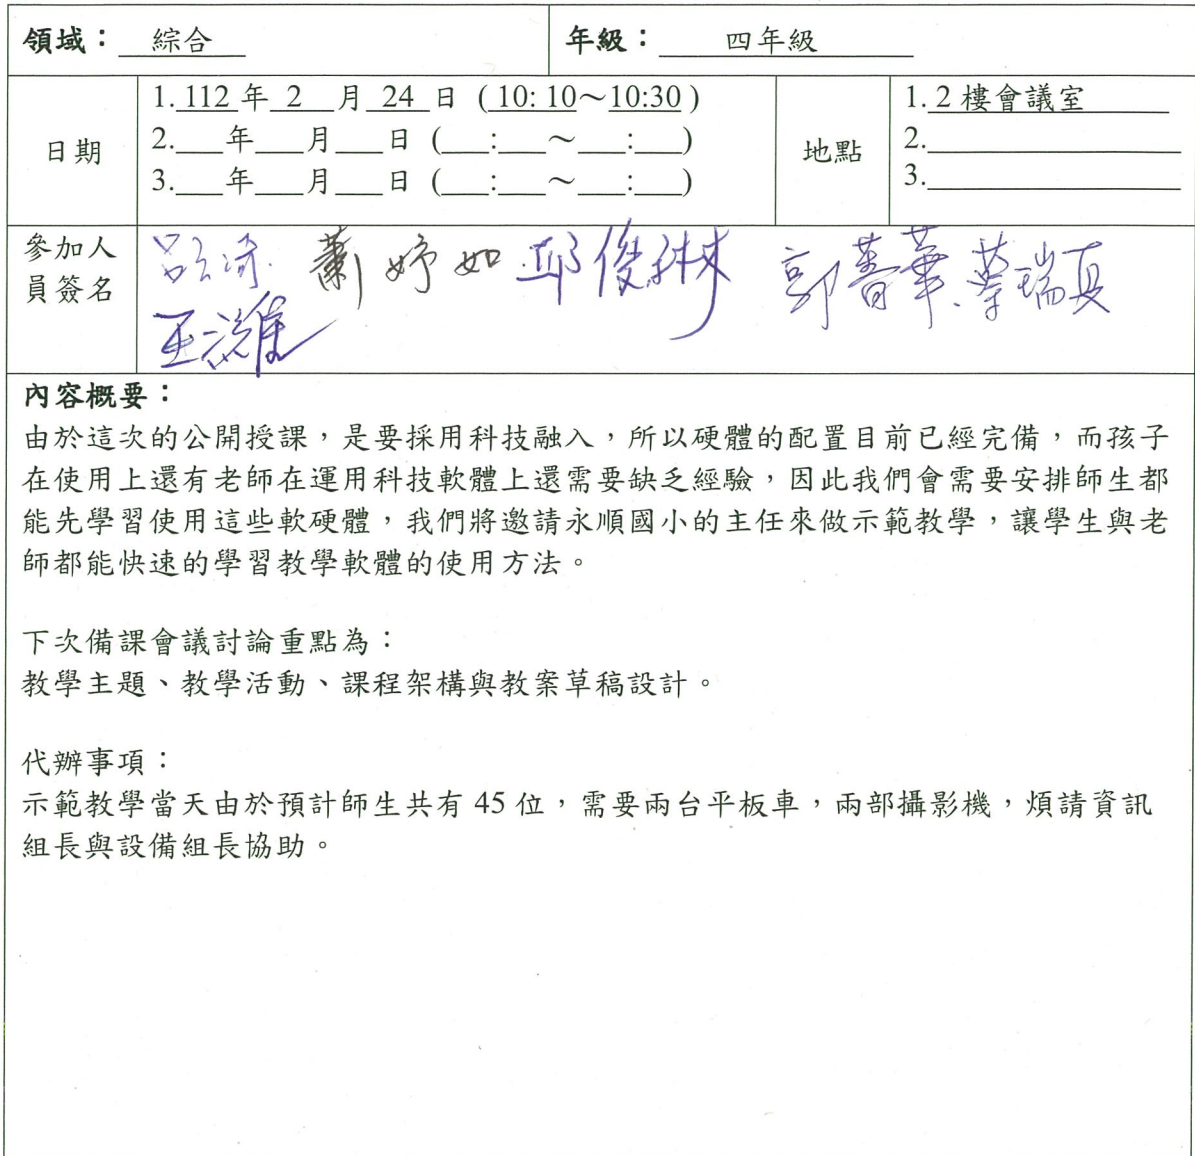 領域：綜合 年級：四年級
日期 1. 112 年 2 月 24 日 (10:10～10:30) 地點 1. 2 樓會議室
2.___年___月___日 (___:___～___:___) 2.
3.___年___月___日 (___:___～___:___) 3.
參加人員簽名 蕭妤如 邱俊琳 郭蕎華 蔡瑞真
內容概要：
由於這次的公開授課，是要採用科技融入，所以硬體的配置目前已經完備，而孩子
在使用上還有老師在運用科技軟體上還需要缺乏經驗，因此我們會需要安排師生都
能先學習使用這些軟硬體，我們將邀請永順國小的主任來做示範教學，讓學生與老
師都能快速的學習教學軟體的使用方法。
下次備課會議討論重點為：
教學主題、教學活動、課程架構與教案草稿設計。
代辦事項：
示範教學當天由於預計師生共有 45 位，需要兩台平板車，兩部攝影機，煩請資訊
組長與設備組長協助。